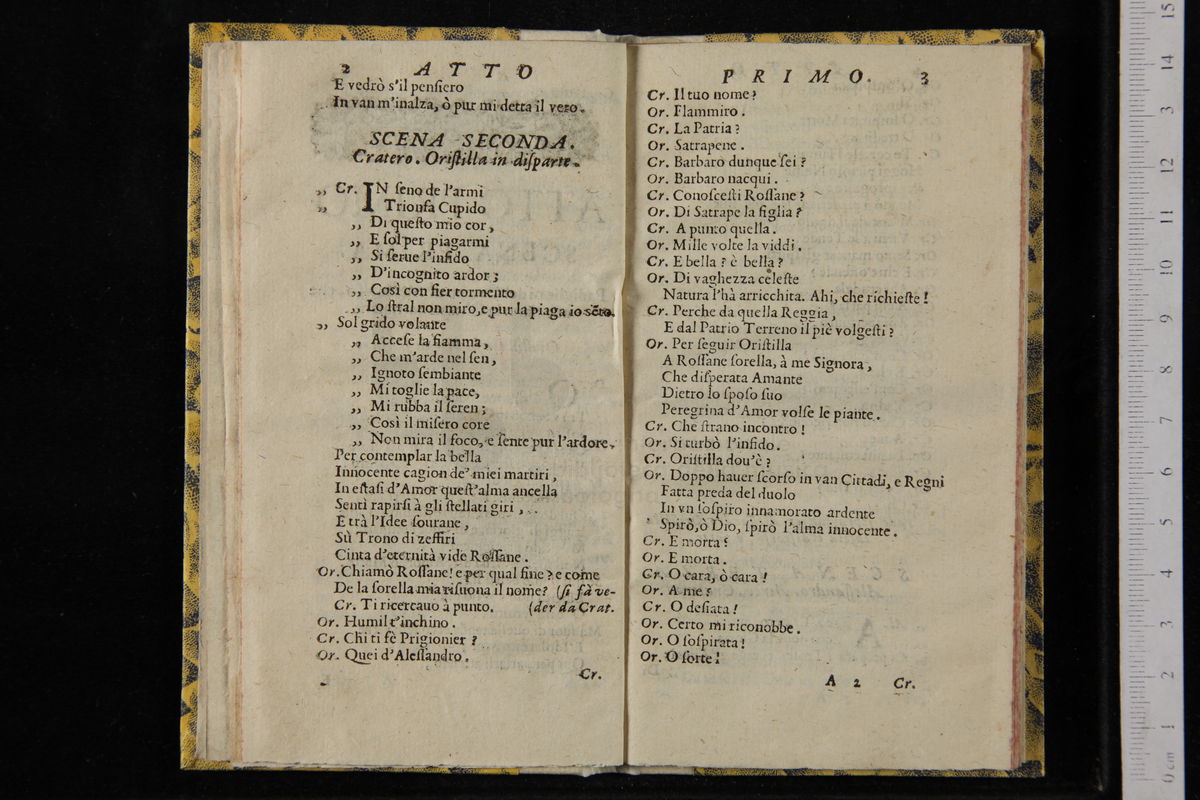 2 ATTO
E vedrò s'il penſiero
In van m'inalza, ò pur mi detta il vero.
SCENA SECONDA.
Cratero. Oriſtilla in diſparte.
„ Cr. IN ſeno de l'armi
„ Trionfa Cupido
„ Di queſto mio cor,
„ E ſol per piagarmi
„ Si ſerue l'infido
„ D'incognito ardor;
„ Così con fier tormento
„ Lo ſtral non miro, e pur la piaga io sẽto.
„ Sol grido volante
„ Acceſe la fiamma,
„ Che m'arde nel ſen,
„ Ignoto ſembiante
„ Mi toglie la pace,
„ Mi rubba il ſeren;
„ Così il miſero core
„ Non mira il foco, e ſente pur l'ardore.
Per contemplar la bella
Innocente cagion de' miei martiri,
In eſtaſi d'Amor queſt'alma ancella
Sentì rapirſi à gli ſtellati giri,
E trà l'Idee ſourane,
Sù Trono di zeffiri
Cinta d'eternità vide Roſſane.
Or. Chiamò Roſſane! e per qual fine? e come
De la ſorella mia riſuona il nome? (ſi fà ve-
Cr. Ti ricercauo à punto. (der da Crat.
Or. Humil t'inchino.
Cr. Chi ti fè Prigionier?
Or. Quei d'Aleſſandro.
Cr.
PRIMO. 3
Cr. Il tuo nome?
Or. Flammiro.
Cr. La Patria?
Or. Satrapene.
Cr. Barbaro dunque ſei?
Or. Barbaro nacqui.
Cr. Conoſceſti Roſſane?
Or. Di Satrape la figlia?
Cr. A punto quella.
Or. Mille volte la viddi.
Cr. E bella? è bella?
Or. Di vaghezza celeſte
Natura l'hà arricchita. Ahi, che richieſte!
Cr. Perche da quella Reggia,
E dal Patrio Terreno il piè volgeſti?
Or. Per ſeguir Oriſtilla
A Roſſane ſorella, à me Signora,
Che diſperata Amante
Dietro lo ſpoſo ſuo
Peregrina d'Amor volſe le piante.
Cr. Che ſtrano incontro!
Or. Si turbò l'infido.
Cr. Oriſtilla dou'è?
Or. Doppo hauer ſcorſo in van Cittadi, e Regni
Fatta preda del duolo
In vn ſoſpiro innamorato ardente
Spirò, ò Dio, ſpirò l'alma innocente.
Cr. E morta?
Or. E morta.
Cr. O cara, ò cara!
Or. A me?
Cr. O deſiata!
Or. Certo mi riconobbe.
Or. O ſoſpirata!
Or. O ſorte!
A 2 Cr.